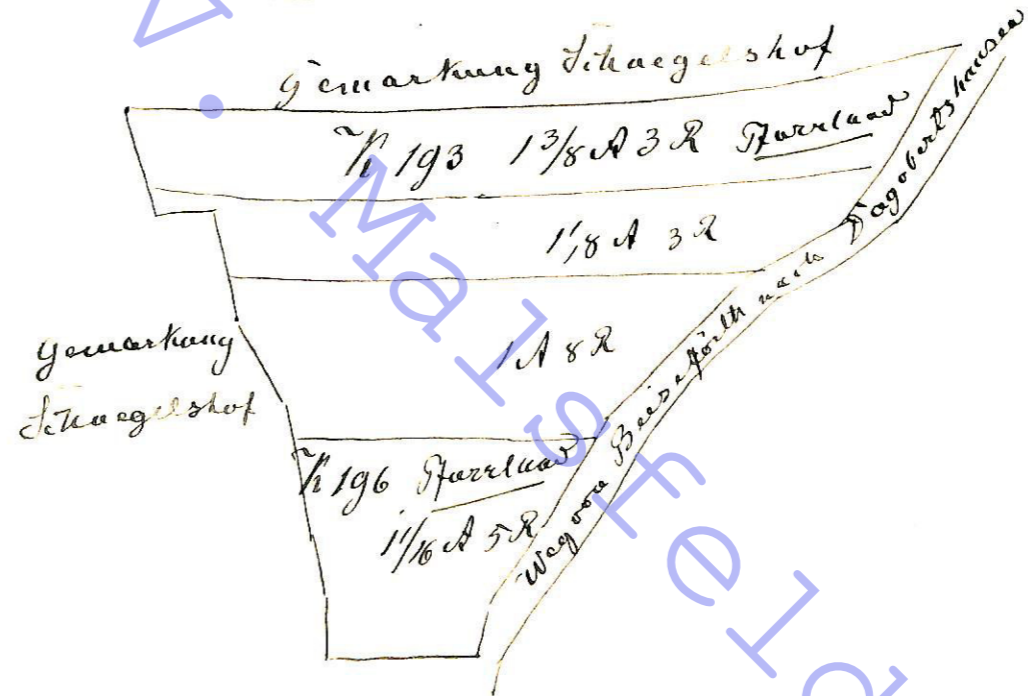 Gemarkung Schaegelshof
K 193 1 3/8 A 3 R Pfarrland
1 1/8 A 3 R
1 A 8 R
Gemarkung
Schaegelshof
K 196 Pfarrland
11/16 A 5 R
Weg von Beiseförth nach Dagobertshausen
V. Malsfeld